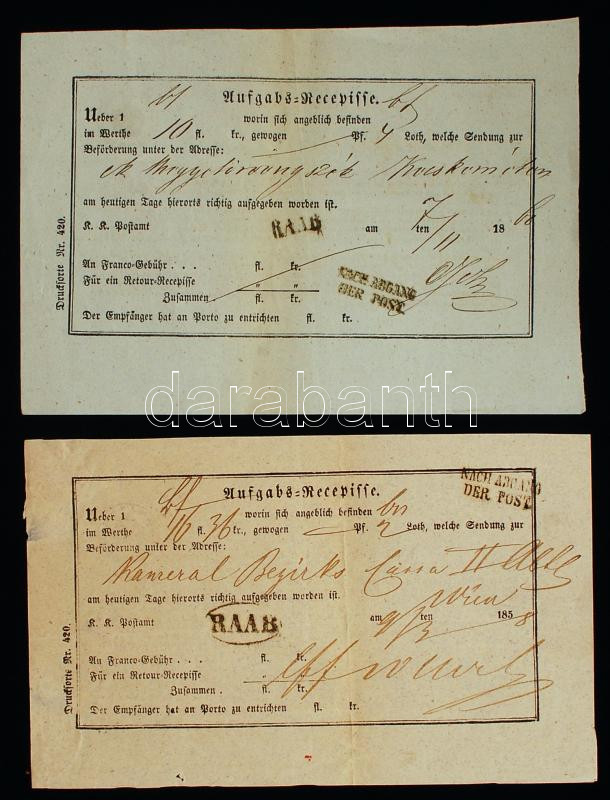 Aufgabs-Recepisse.
Ueber 1 bf worin sich angeblich befinden bf
im Werthe 10 fl. kr., gewogen Pf. 4 Loth, welche Sendung zur
Beförderung unter der Adresse:
am heutigen Tage hierorts richtig aufgegeben worden ist.
K. K. Postamt RAAB am 7/11 ten 18 60
An Franco-Gebühr . . . fl. kr.
Für ein Retour-Recepisse " "
Zusammen fl. kr.
NACH ABGANG
DER POST
Der Empfänger hat an Porto zu entrichten fl. kr.
Drucksorte Nr. 420.
darabanth
NACH ABGANG
DER POST
Aufgabs-Recepisse.
Ueber 1 bf worin sich angeblich befinden
im Werthe 16 fl. 36 kr., gewogen Pf. 2 Loth, welche Sendung zur
Beförderung unter der Adresse:
Kameral Bezirks Cassa II Abth
Wien
am heutigen Tage hierorts richtig aufgegeben worden ist.
K. K. Postamt RAAB am 9/3 ten 185 8
An Franco-Gebühr . . . fl. kr.
Für ein Retour-Recepisse
Zusammen . fl. kr.
Der Empfänger hat an Porto zu entrichten fl. kr.
Drucksorte Nr. 420.